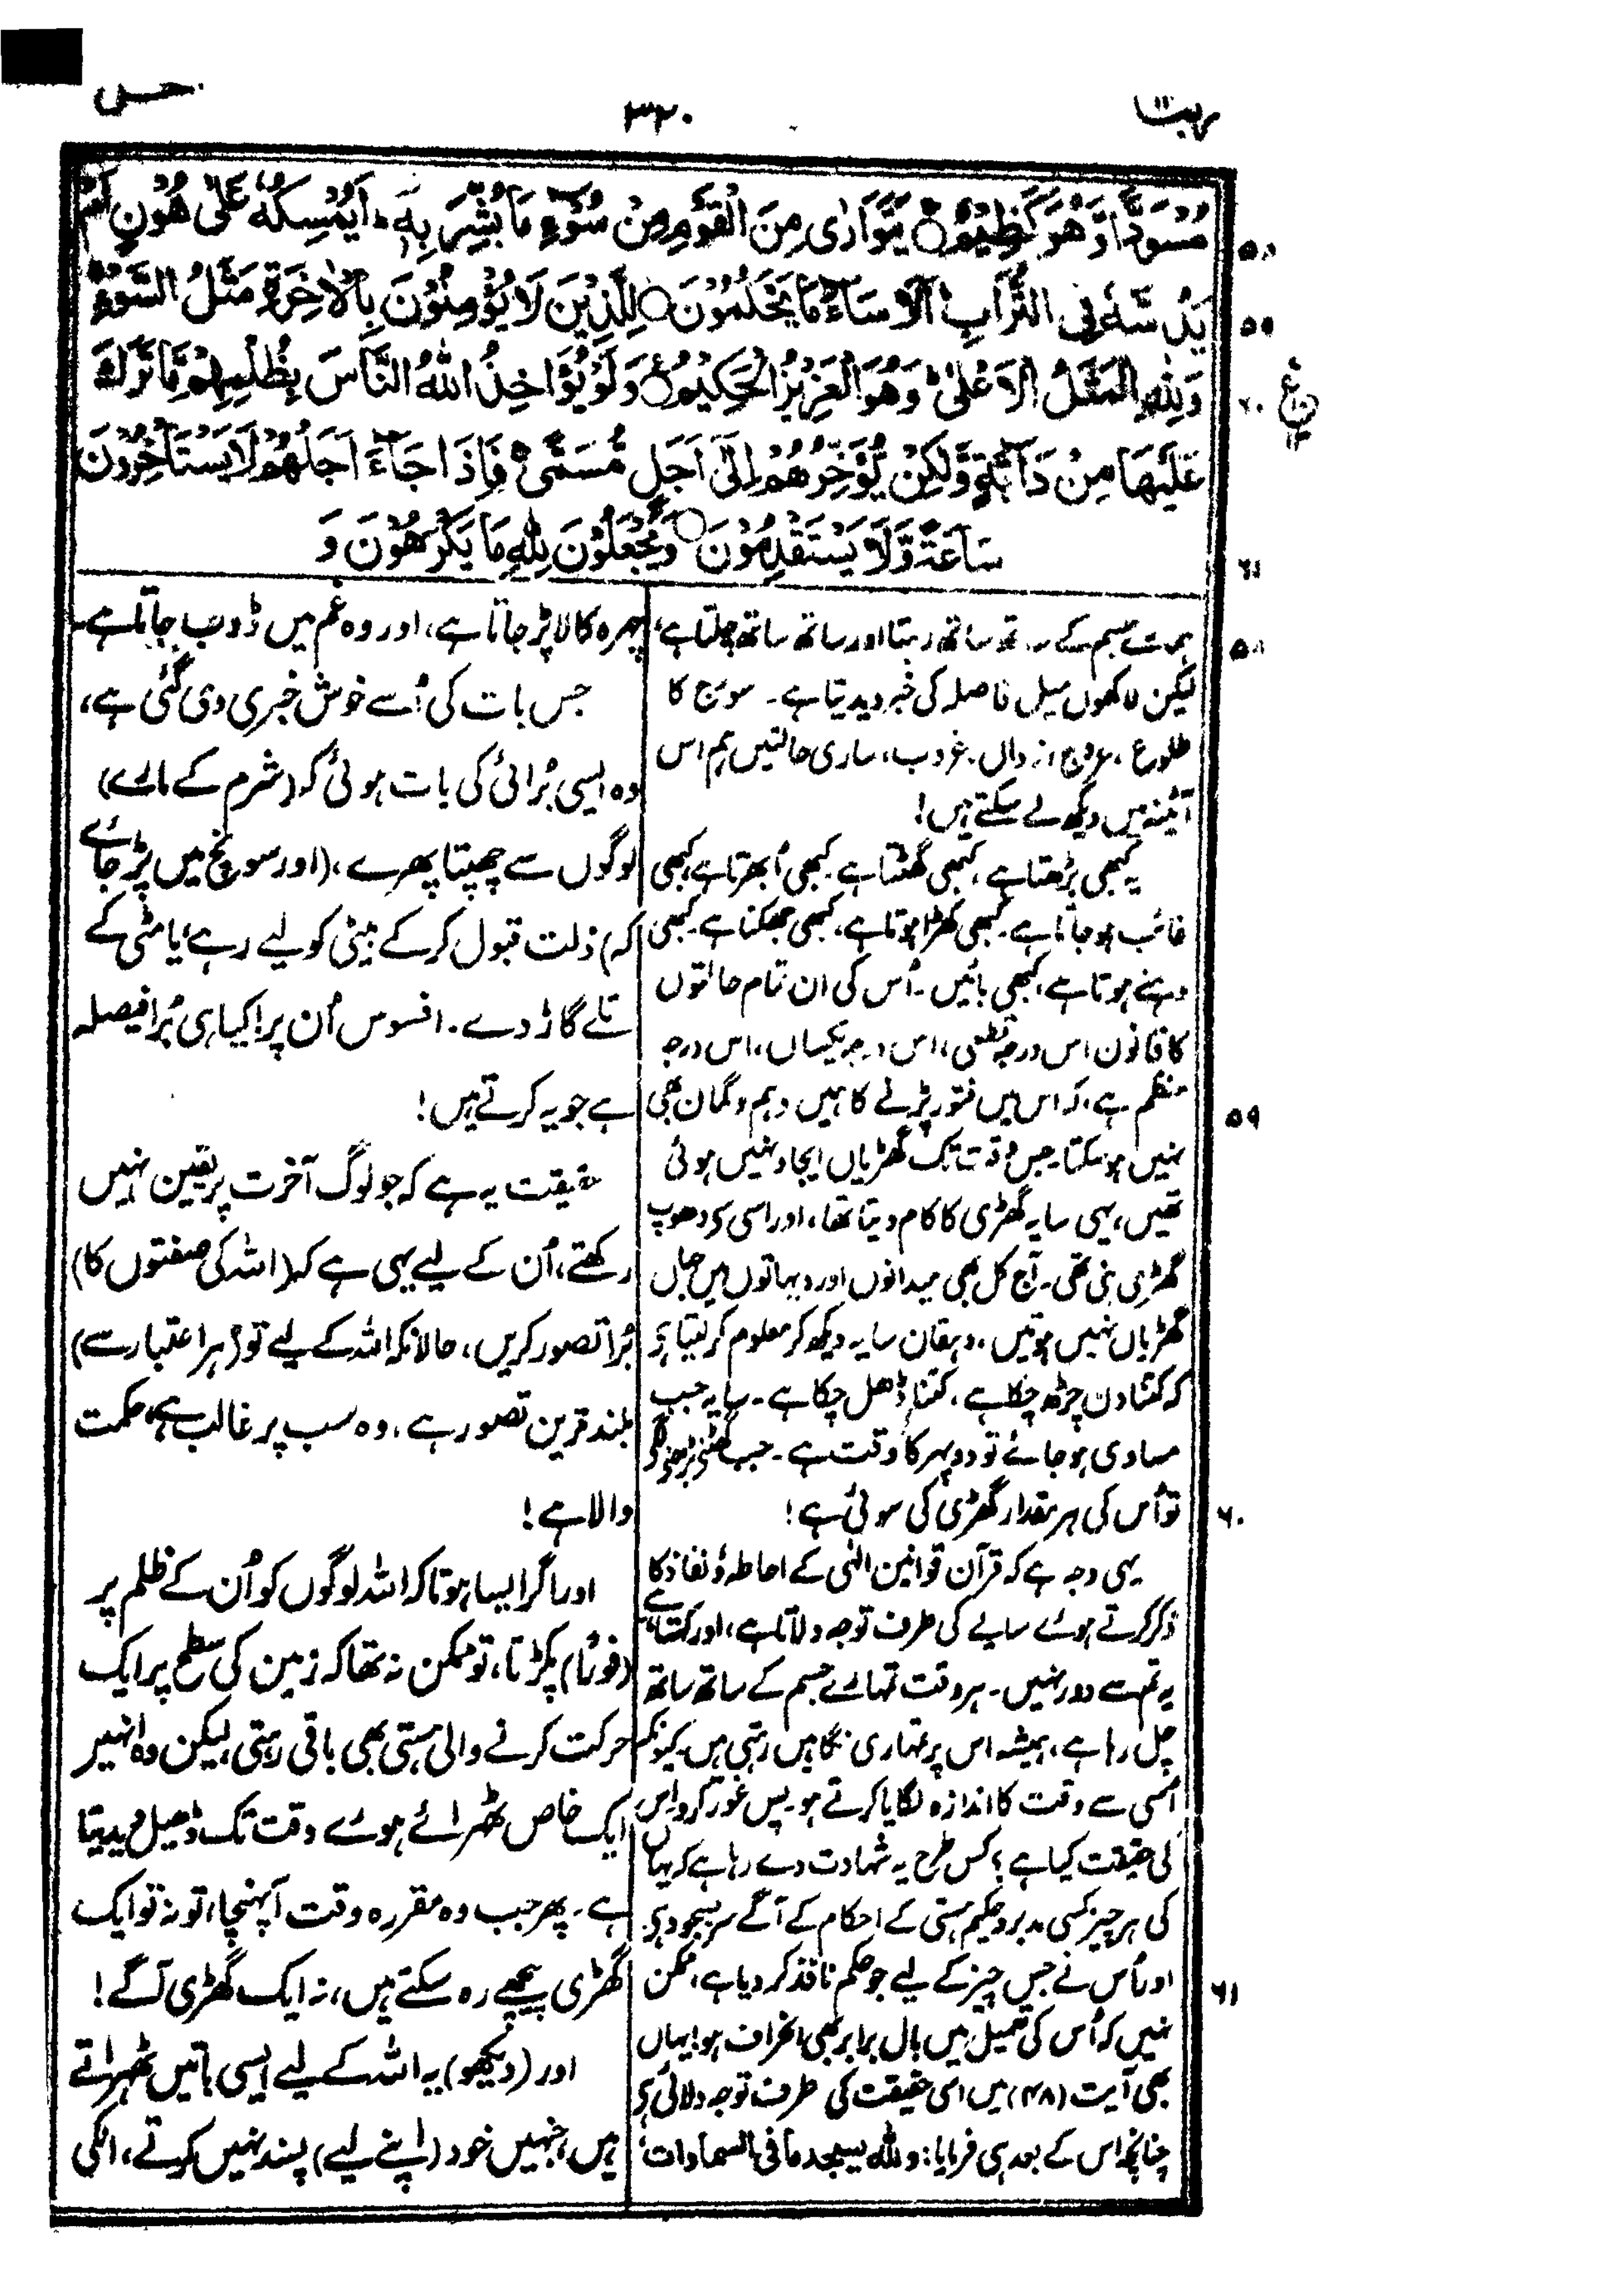 ربما ۳۲۰ النحل
مُسْوَدًّا وَّهُوَ كَظِيْمٌ ○ يَتَوَارٰى مِنَ الْقَوْمِ مِنْ سُوْٓءِ مَا بُشِّرَ بِهٖ ۭ اَيُمْسِكُهٗ عَلٰى هُوْنٍ اَمْ ۵۸
يَدُسُّهٗ فِى التُّرَابِ ۭ اَلَا سَآءَ مَا يَحْكُمُوْنَ ○ لِلَّذِيْنَ لَا يُؤْمِنُوْنَ بِالْاٰخِرَةِ مَثَلُ السَّوْءِ ۚ ۵۹
وَلِلّٰهِ الْمَثَلُ الْاَعْلٰى ۭ وَهُوَ الْعَزِيْزُ الْحَكِيْمُ ○ وَلَوْ يُؤَاخِذُ اللّٰهُ النَّاسَ بِظُلْمِهِمْ مَّا تَرَكَ ۶۰
عَلَيْهَا مِنْ دَآبَّةٍ وَّلٰكِنْ يُّؤَخِّرُهُمْ اِلٰٓى اَجَلٍ مُّسَمًّى ۚ فَاِذَا جَآءَ اَجَلُهُمْ لَا يَسْتَاْخِرُوْنَ
سَاعَةً وَّلَا يَسْتَقْدِمُوْنَ ○ وَيَجْعَلُوْنَ لِلّٰهِ مَا يَكْرَهُوْنَ وَ ۶۱
جسم کے ساتھ ساتھ رہتا اور ساتھ ساتھ چلتا ہے، ۵۸
لیکن لاکھوں میل فاصلہ کی خبر دیدیتا ہے۔ سورج کا
طلوع، عروج، زوال، غروب، ساری حالتیں ہم اس
آئینہ میں دیکھ لے سکتے ہیں!
یہ کبھی بڑھتا ہے، کبھی گھٹتا ہے۔ کبھی اُبھرتا ہے، کبھی
غائب ہوجاتا ہے۔ کبھی کھڑا ہوتا ہے، کبھی جھکتا ہے۔ کبھی
دہنے ہوتا ہے، کبھی بائیں۔ اُس کی ان تمام حالتوں
کا قانون اس درجہ قطعی، اس درجہ یکساں، اس درجہ
منظم ہے، کہ اس میں فتور پڑنے کا ہمیں وہم و گمان بھی
نہیں ہو سکتا۔ جس وقت تک گھڑیاں ایجاد نہیں ہوئی ۵۹
تھیں، یہی سایہ گھڑی کا کام دیتا تھا، اور اسی سے دھوپ
گھڑی بنی تھی۔ آج کل بھی میدانوں اور دیہاتوں میں جہاں
گھڑیاں نہیں ہوتیں، دہقان سایہ دیکھ کر معلوم کر لیتا ہے
کہ کتنا دن چڑھ چکا ہے، کتنا ڈھل چکا ہے۔ سایہ جب
مساوی ہو جائے تو دوپہر کا وقت ہے۔ جب گھٹنے بڑھنے لگے
تو اُس کی ہر مقدار گھڑی کی سوئی ہے! ۶۰
یہی وجہ ہے کہ قرآن قوانین الٰہی کے احاطہ و نفاذ کا
ذکر کرتے ہوئے سایے کی طرف توجہ دلاتا ہے، اور کہتا ہے
یہ تم سے دور نہیں۔ ہر وقت تمہارے جسم کے ساتھ ساتھ
چل رہا ہے، ہمیشہ اس پر تمہاری نگاہیں رہتی ہیں، کیونکہ
اسی سے وقت کا اندازہ لگایا کرتے ہو۔ پس غور کرو، اس
کی حقیقت کیا ہے؟ کس طرح یہ شہادت دے رہا ہے کہ یہاں
کی ہر چیز کسی مدبر و حکیم ہستی کے احکام کے آگے سربسجود ہے
اور اُس نے جس چیز کے لیے جو حکم نافذ کر دیا ہے، ممکن ۶۱
نہیں کہ اُس کی تعمیل میں بال برابر بھی انحراف ہو! یہاں
بھی آیت (۴۸) میں اسی حقیقت کی طرف توجہ دلائی ہے
چنانچہ اس کے بعد ہی فرمایا: وللہ یسجد ما فی السماوات
چہرہ کالا پڑ جاتا ہے، اور وہ غم میں ڈوب جاتا ہے۔
جس بات کی اُسے خوش خبری دی گئی ہے،
وہ ایسی بُرائی کی بات ہوئی کہ (شرم کے مارے)
لوگوں سے چھپتا پھرے، (اور سونچ میں پڑ جائے
کہ) ذلت قبول کر کے بیٹی کو لیے رہے، یا مٹی کے
تلے گاڑ دے۔ افسوس اُن پر! کیا ہی بُرا فیصلہ
ہے جو یہ کرتے ہیں!
حقیقت یہ ہے کہ جو لوگ آخرت پر یقین نہیں
رکھتے، اُن کے لیے یہی ہے کہ (اللہ کی صفتوں کا)
بُرا تصور کریں، حالانکہ اللہ کے لیے تو (ہر اعتبار سے)
بلند ترین تصور ہے، وہ سب پر غالب ہے، حکمت
والا ہے!
اور اگر ایسا ہوتا کہ اللہ لوگوں کو اُن کے ظلم پر
(فوراً) پکڑتا، تو ممکن نہ تھا کہ زمین کی سطح پر ایک
حرکت کرنے والی ہستی بھی باقی رہتی، لیکن وہ انہیں
ایک خاص ٹھہرائے ہوئے وقت تک ڈھیل دیدیتا
ہے۔ پھر جب وہ مقررہ وقت آپہنچا، تو نہ تو ایک
گھڑی پیچھے رہ سکتے ہیں، نہ ایک گھڑی آگے!
اور (دیکھو) یہ اللہ کے لیے ایسی باتیں ٹھہراتے
ہیں، جنہیں خود (اپنے لیے) پسند نہیں کرتے، انکی